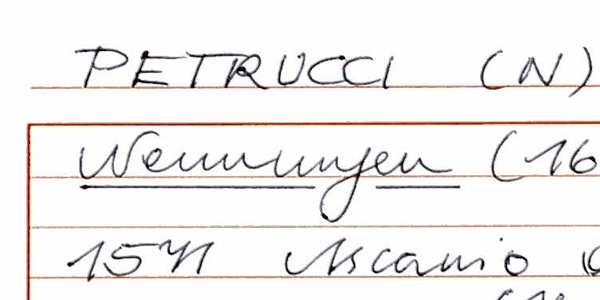 PETRUCCI (N)
Wennungen (16
1571 Ascanio